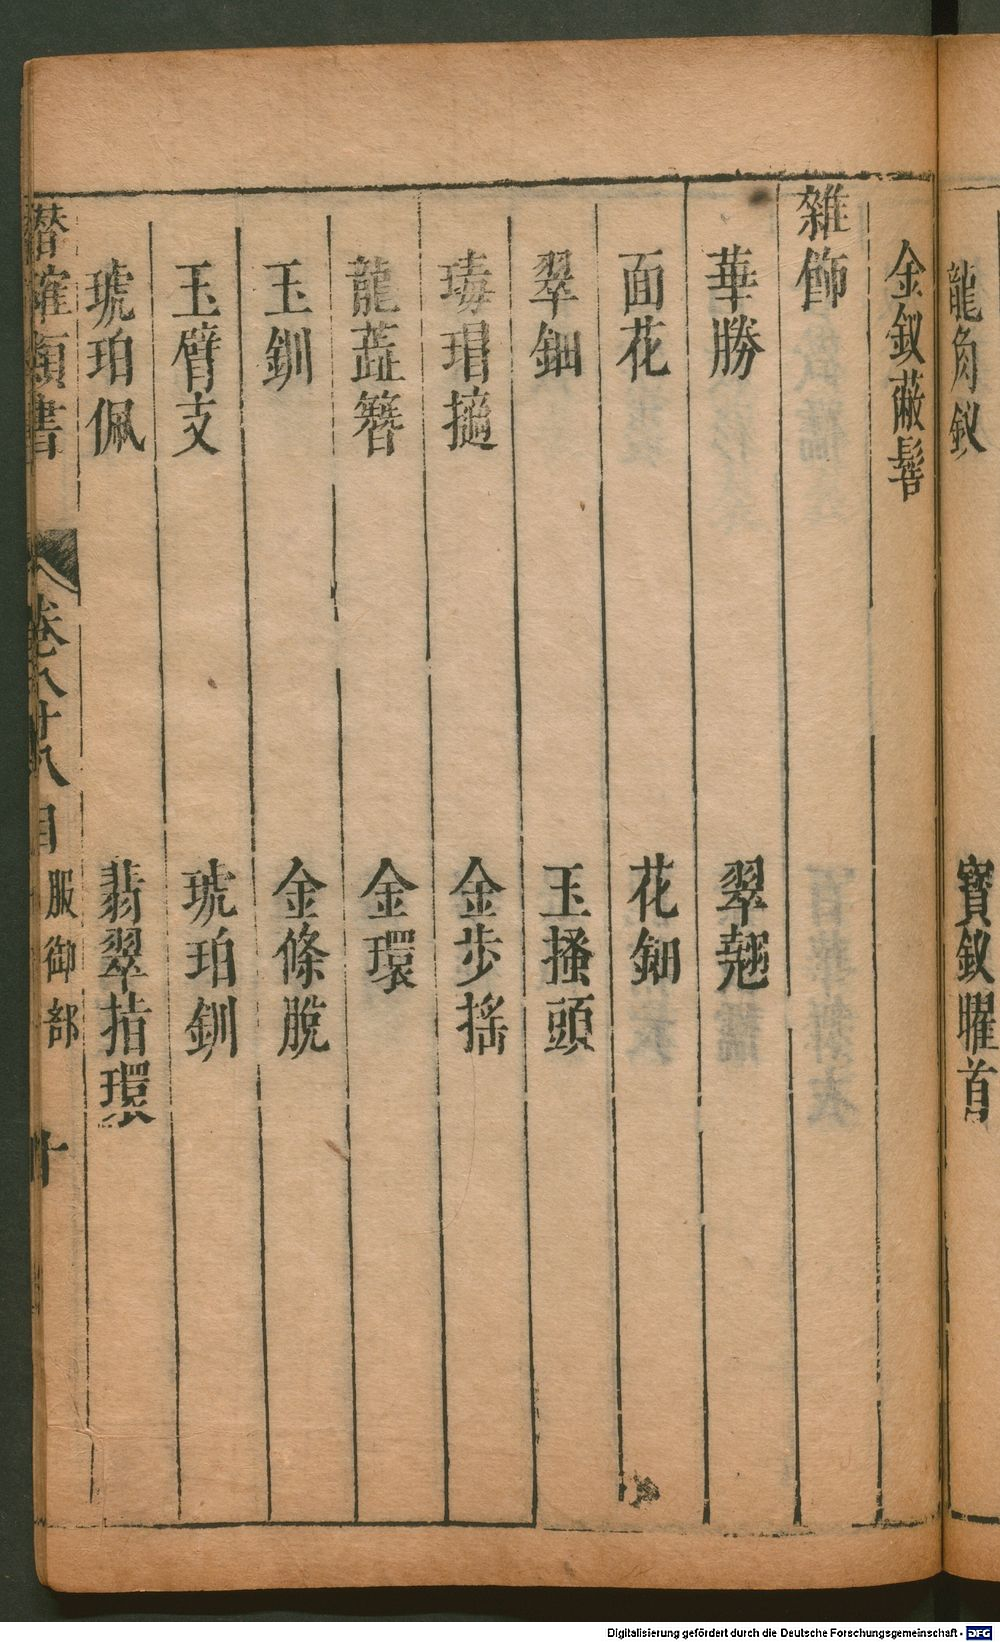 龍角釵　寶釵曜首
金釵蔽髾
雜飾
華勝　翠翹
面花　花鈿
翠鈿　玉搔頭
瑇瑁擿　金步搖
龍蕋簪　金環
玉釧　金條脫
玉臂支　琥珀釧
琥珀佩　翡翠指環
潛確類書　卷八十八目　服御部　十
Digitalisierung gefördert durch die Deutsche Forschungsgemeinschaft - DFG